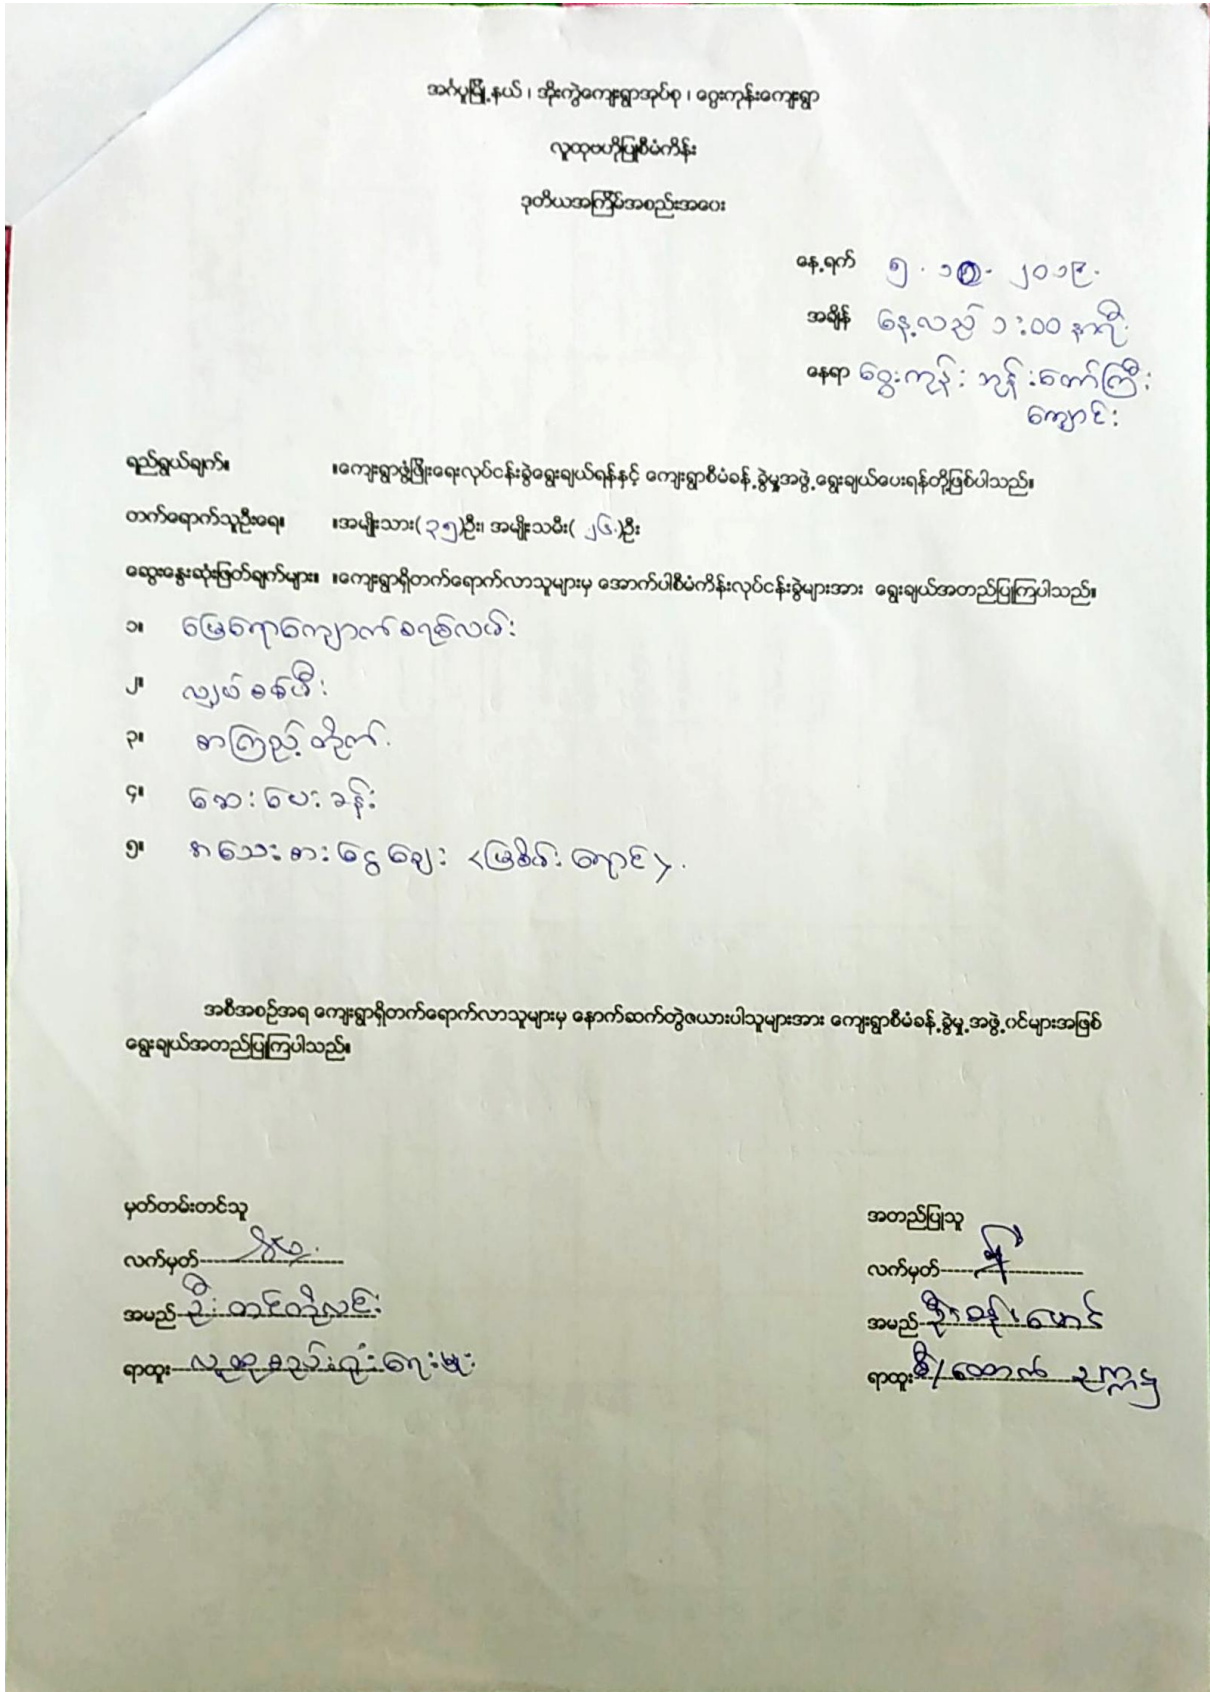 အင်္ဂပူမြို့နယ်၊ အိုးကွဲကျေးရွာအုပ်စု၊ ဝွေးကုန်းကျေးရွာ
လူထုဗဟိုပြုစီမံကိန်း
ဒုတိယအကြိမ်အစည်းအဝေး
နေ့ရက် ၅.၁၀.၂၀၁၉.
အချိန် နေ့လည် ၁:၀၀ နာရီ
နေရာ ဝွေးကုန်း ဘုန်းတော်ကြီး
ကျောင်း
ရည်ရွယ်ချက်။ ။ကျေးရွာဖွံ့ဖြိုးရေးလုပ်ငန်းခွဲရွေးချယ်ရန်နှင့် ကျေးရွာစီမံခန့်ခွဲမှုအဖွဲ့ရွေးချယ်ပေးရန်တို့ဖြစ်ပါသည်။
တက်ရောက်သူဦးရေ။ ။အမျိုးသား(၃၅)ဦး၊ အမျိုးသမီး(၂၆.)ဦး
ဆွေးနွေးဆုံးဖြတ်ချက်များ။ ။ကျေးရွာရှိတက်ရောက်လာသူများမှ အောက်ပါစီမံကိန်းလုပ်ငန်းခွဲများအား ရွေးချယ်အတည်ပြုကြပါသည်။
၁။ မြေရောကျောက်စရစ်လမ်း
၂။ လျှပ်စစ်မီး
၃။ စာကြည့်တိုက်.
၄။ ဆေးပေးခန်း
၅။ အသေးစားငွေချေး <မြစိမ်းရောင်>.
အစီအစဉ်အရ ကျေးရွာရှိတက်ရောက်လာသူများမှ နောက်ဆက်တွဲဇယားပါသူများအား ကျေးရွာစီမံခန့်ခွဲမှု့အဖွဲ့ဝင်များအဖြစ်
ရွေးချယ်အတည်ပြုကြပါသည်။
မှတ်တမ်းတင်သူ
အတည်ပြုသူ
လက်မှတ်
လက်မှတ်
အမည် ဦးတင်ကိုလင်း
အမည် ဦးဝန်းမောင်
ရာထူး လူထုစည်းရုံးရေးမှူး
ရာထူး စီ/ထောက် ဥက္ကဋ္ဌ